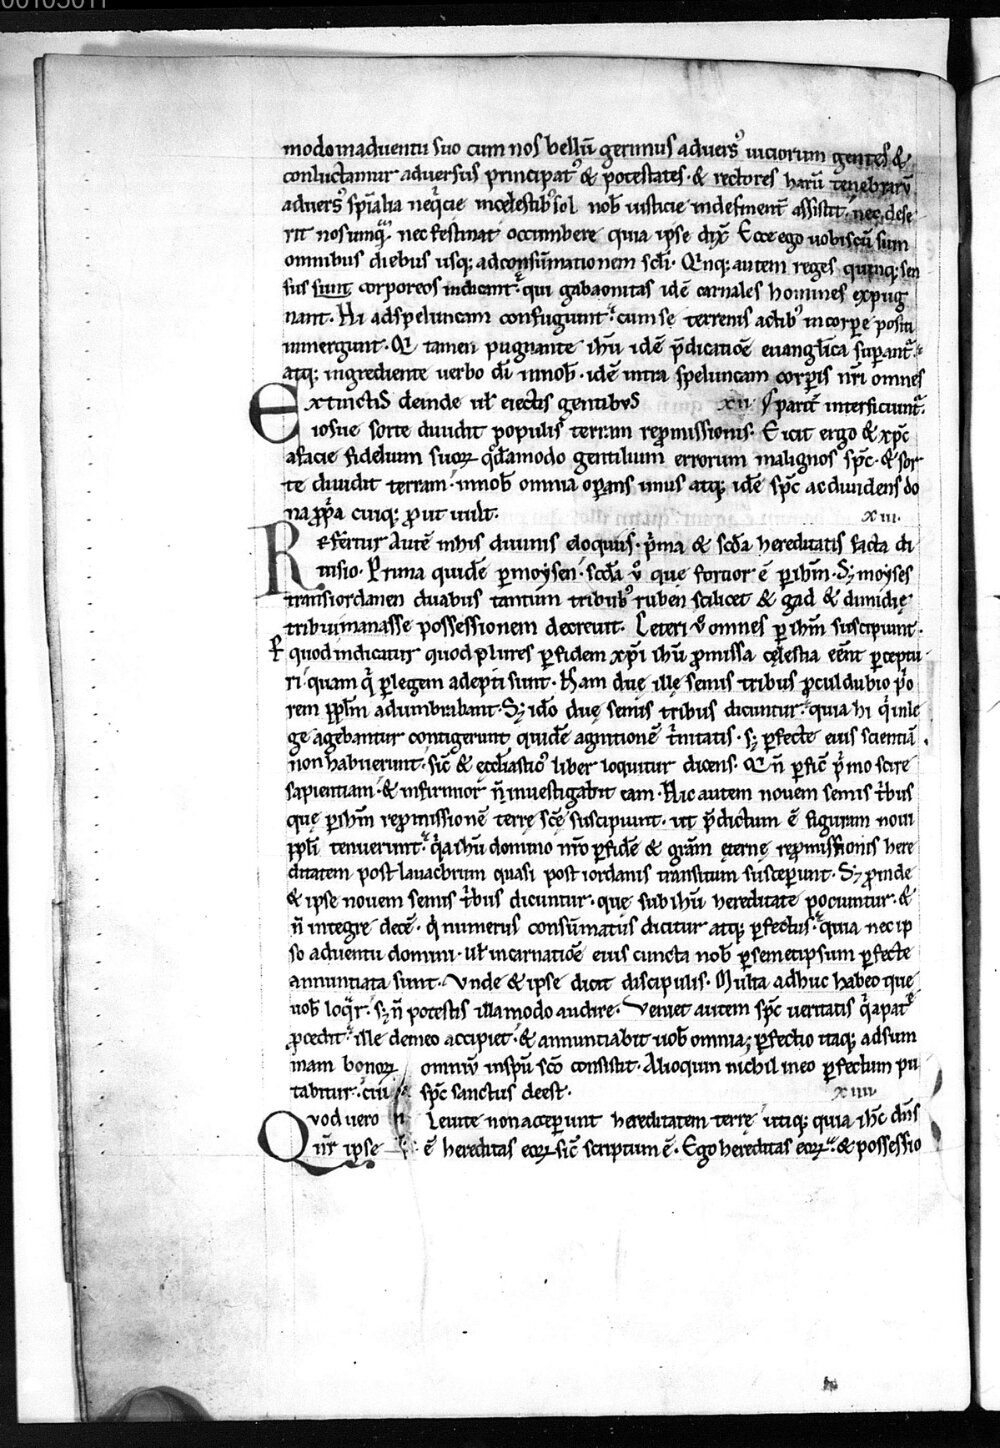 modo in aduentu suo cum nos bellū gerimus aduersꝰ uiciorum gentes &
conluctamur aduersus principatꝰ & potestates · & rectores harū tenebrarū
aduersꝰ sp̄ialia neq̇cie in celestibꝰ sol nob̄ iusticie indefinent̄ assistit · nec dese
rit nos umq̄ · nec festinat occumbere quia ipse dix̄ Ecce ego uobiscū sum
omnibus diebus usq; ad consūmationem sc̄li · Qnq; autem reges quinq; sen
sus sunt corporeos indicant · qui gabaonitas idē carnales homines expug
nant · Hi ad speluncam confugiunt · cum se terrenis actibꝰ in corpe positi
immergunt · Et tamen pugnante ih̄u idē p̄dicatiōe euangl̄ica supant̄ ·
atq; ingrediente uerbo dī in nob̄ · idē intra speluncam corporis nr̄i omnes
Extinctis deinde ul̄ eiectis gentibus xii parit̄ interficiunt̄ ·
iosue sorte diuidit populis terram repromissionis · Eicit ergo & xp̄c
a facie fidelium suoꝝ quēdāmodo gentilium errorum malignos sp̄c · & sor
te diuidit terram · in nob̄ omnia operans unus atq; idē sp̄c ac diuidens do
na ꝓpa cuiq; ꝓut uult · xiii ·
Refertur autē in his diuinis eloquiis · p̄ma & scd̄a hereditatis facta di
uisio · Prima quidē ꝑ moysen · scd̄a ū que fortior ē ꝑ ih̄m · S; moyses
trans iordanen duabus tantum tribubꝰ ruben scilicet & gad & dimidię
tribui manasse possessionem decreuit · Ceteri ū omnes ꝑ ih̄m suscipiunt ·
Ꝑ quod indicatur quod plures ꝑ fidem xp̄i ih̄u ꝓmissa cęlestia eēnt ꝑceptu
ri · quam q̄ ꝑ legem adepti sunt · Nam duę illę semis tribus ꝓcul dubio p̄o
rem ppl̄m adumbrabant · S; ideo duę semis tribus dicuntur · quia hi q̇ in le
ge agebantur contigerunt quidē agnitionē t̄nitatis · s; ꝑfecte eius scientiā
non habuerunt · sic̄ & eccl̄iasticꝰ liber loquitur dicens · Qn̄ ꝑfic̄ p̄mo scire
sapientiam · & infirmior n̄ inuestigabit eam · Hic autem nouem semis t̄bus
quę ꝑ ih̄m repromissionē terrę scē suscipiunt · ut p̄dictum ē figuram noui
ppl̄i tenuerunt · q̄a ih̄u domino nr̄o ꝑ fidē & grām ęternę repromissionis here
ditatem post lauacrum quasi post iordanis transitum susceperunt · S; ꝓinde
& ipse nouem semis t̄bus dicuntur · quę sub ih̄u hereditate pociuntur · &
n̄ integre decē · q̇ numerus consūmatus dicitur atq; ꝑfectus · quia nec ip
so aduentu domini · ul̄ incarnatiōe eius cuncta nob̄ ꝑ semetipsum ꝑfecte
annuntiata sunt · Vnde & ipse dicit discipulis · Multa adhuc habeo que
uob̄ loq̄r · s; n̄ potestis illa modo audire · Veniet autem sp̄c ueritatis q̇ a pat̄
ꝓcedit · ille de meo accipiet · & annuntiabit uob̄ omnia; ꝑfectio itaq; ad sum
mam bonoꝝ omniū in sp̄u sc̄o consistit · Alioquin nichil in eo ꝑfectum pu
tabitur · cui sp̄c sanctus deest · xiiii ·
Quod uero n̄ Leuite non acceperunt hereditatem terrę utiq; quia ih̄c dn̄s
nr̄ ipse ē hereditas eoꝝ sic̄ scriptum ē · Ego hereditas eoꝝ · & possessio